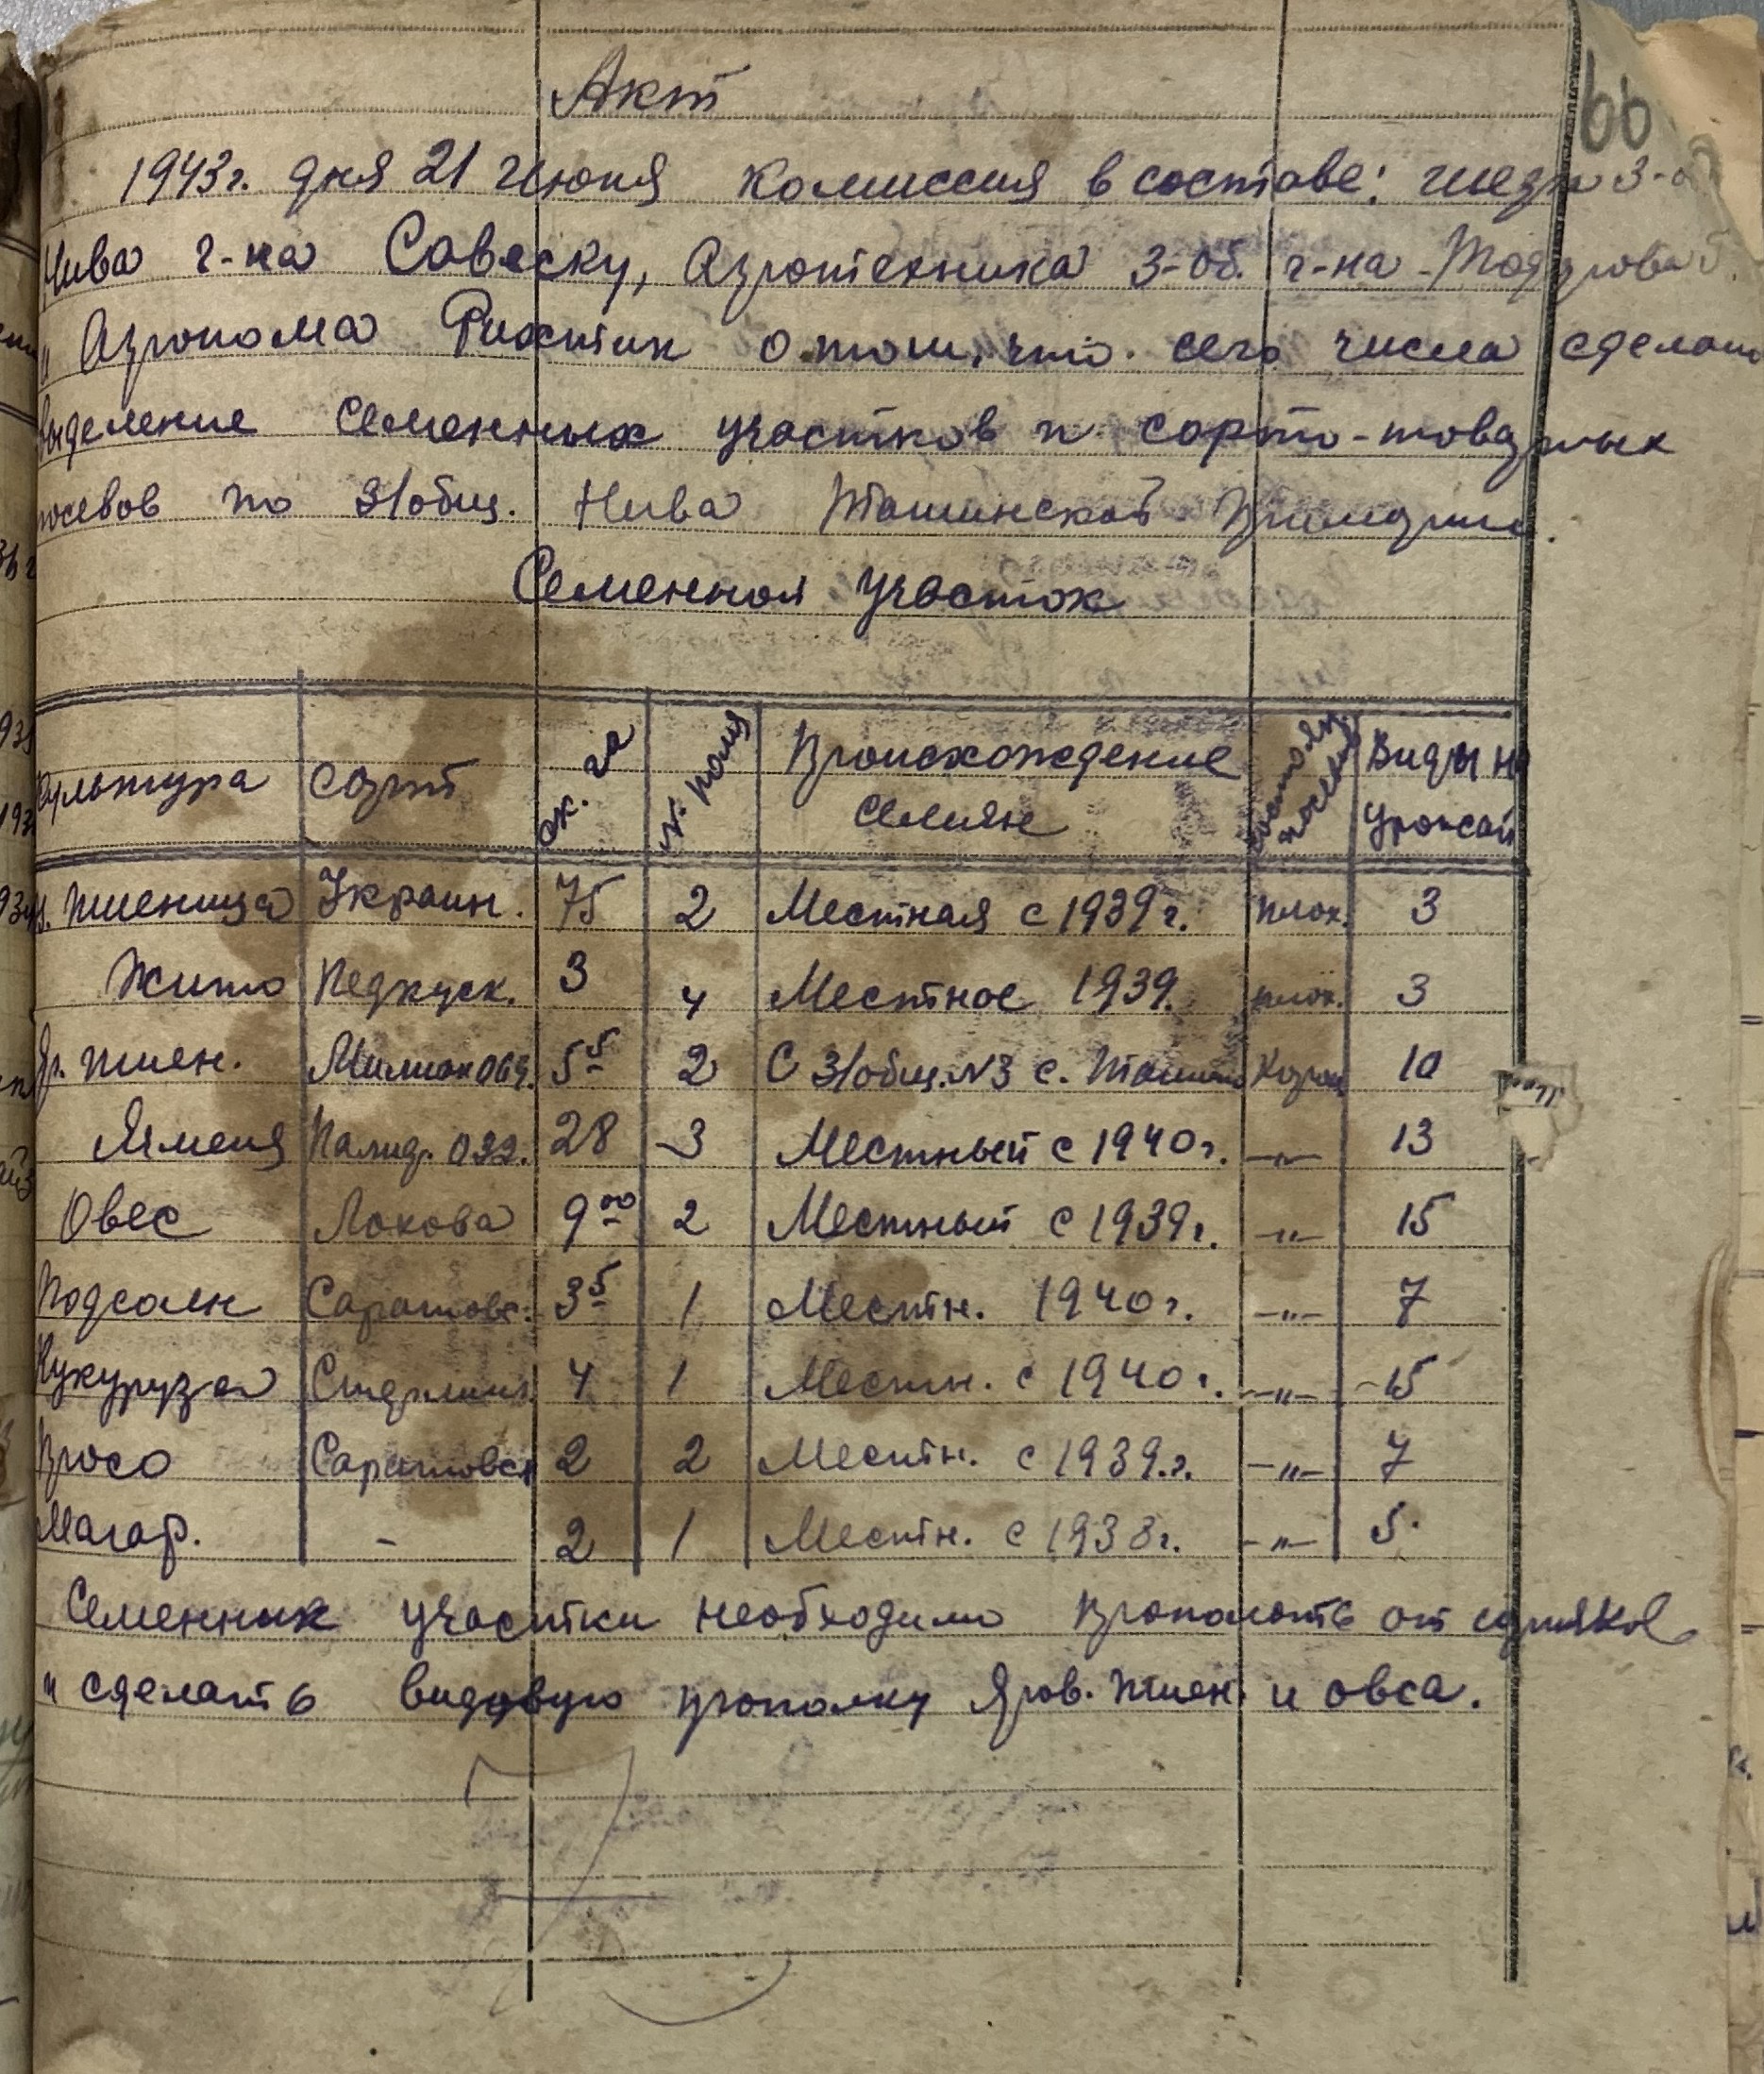 66
Акт
1943 г. дня 21 Июня комиссия в составе: шефа 3-
Нива г-на Савеску, Агротехника 3-об. г-на
и Агронома о том, что сего числа сделано
выделение Семенных участков и сорто-товарных
посевов по З/общ. Нива
Семенной участок
Культура Сорт ск. га № поля Происхождение семян Состоян. посевов Виды на урожай
Пшеница Украин. 75 2 Местная с 1939 г. плох. 3
Жито Педкуск. 3 4 Местное 1939. плох. 3
Яр. пшен. Миляноп 069. 5 5 2 С З/общ. №3 с. Хорош 10
Ячмень Палид. 032. 28 3 Местный с 1940 г. -"- 13
Овес Лохова 9 00 2 Местный с 1939 г. -"- 15
Подсолн Саратовс. 3 5 1 Местн. 1940 г. -"- 7
Кукуруза Стерлинг 4 1 Местн. с 1940 г. -"- 15
Просо Саратовск 2 2 Местн. с 1939.г. -"- 7
Магар. - 2 1 Местн. с 1938 г. -"- 5.
Семенник участки необходимо прополоть от сорняков
и сделать видовую прополку Яров. пшен. и овса.